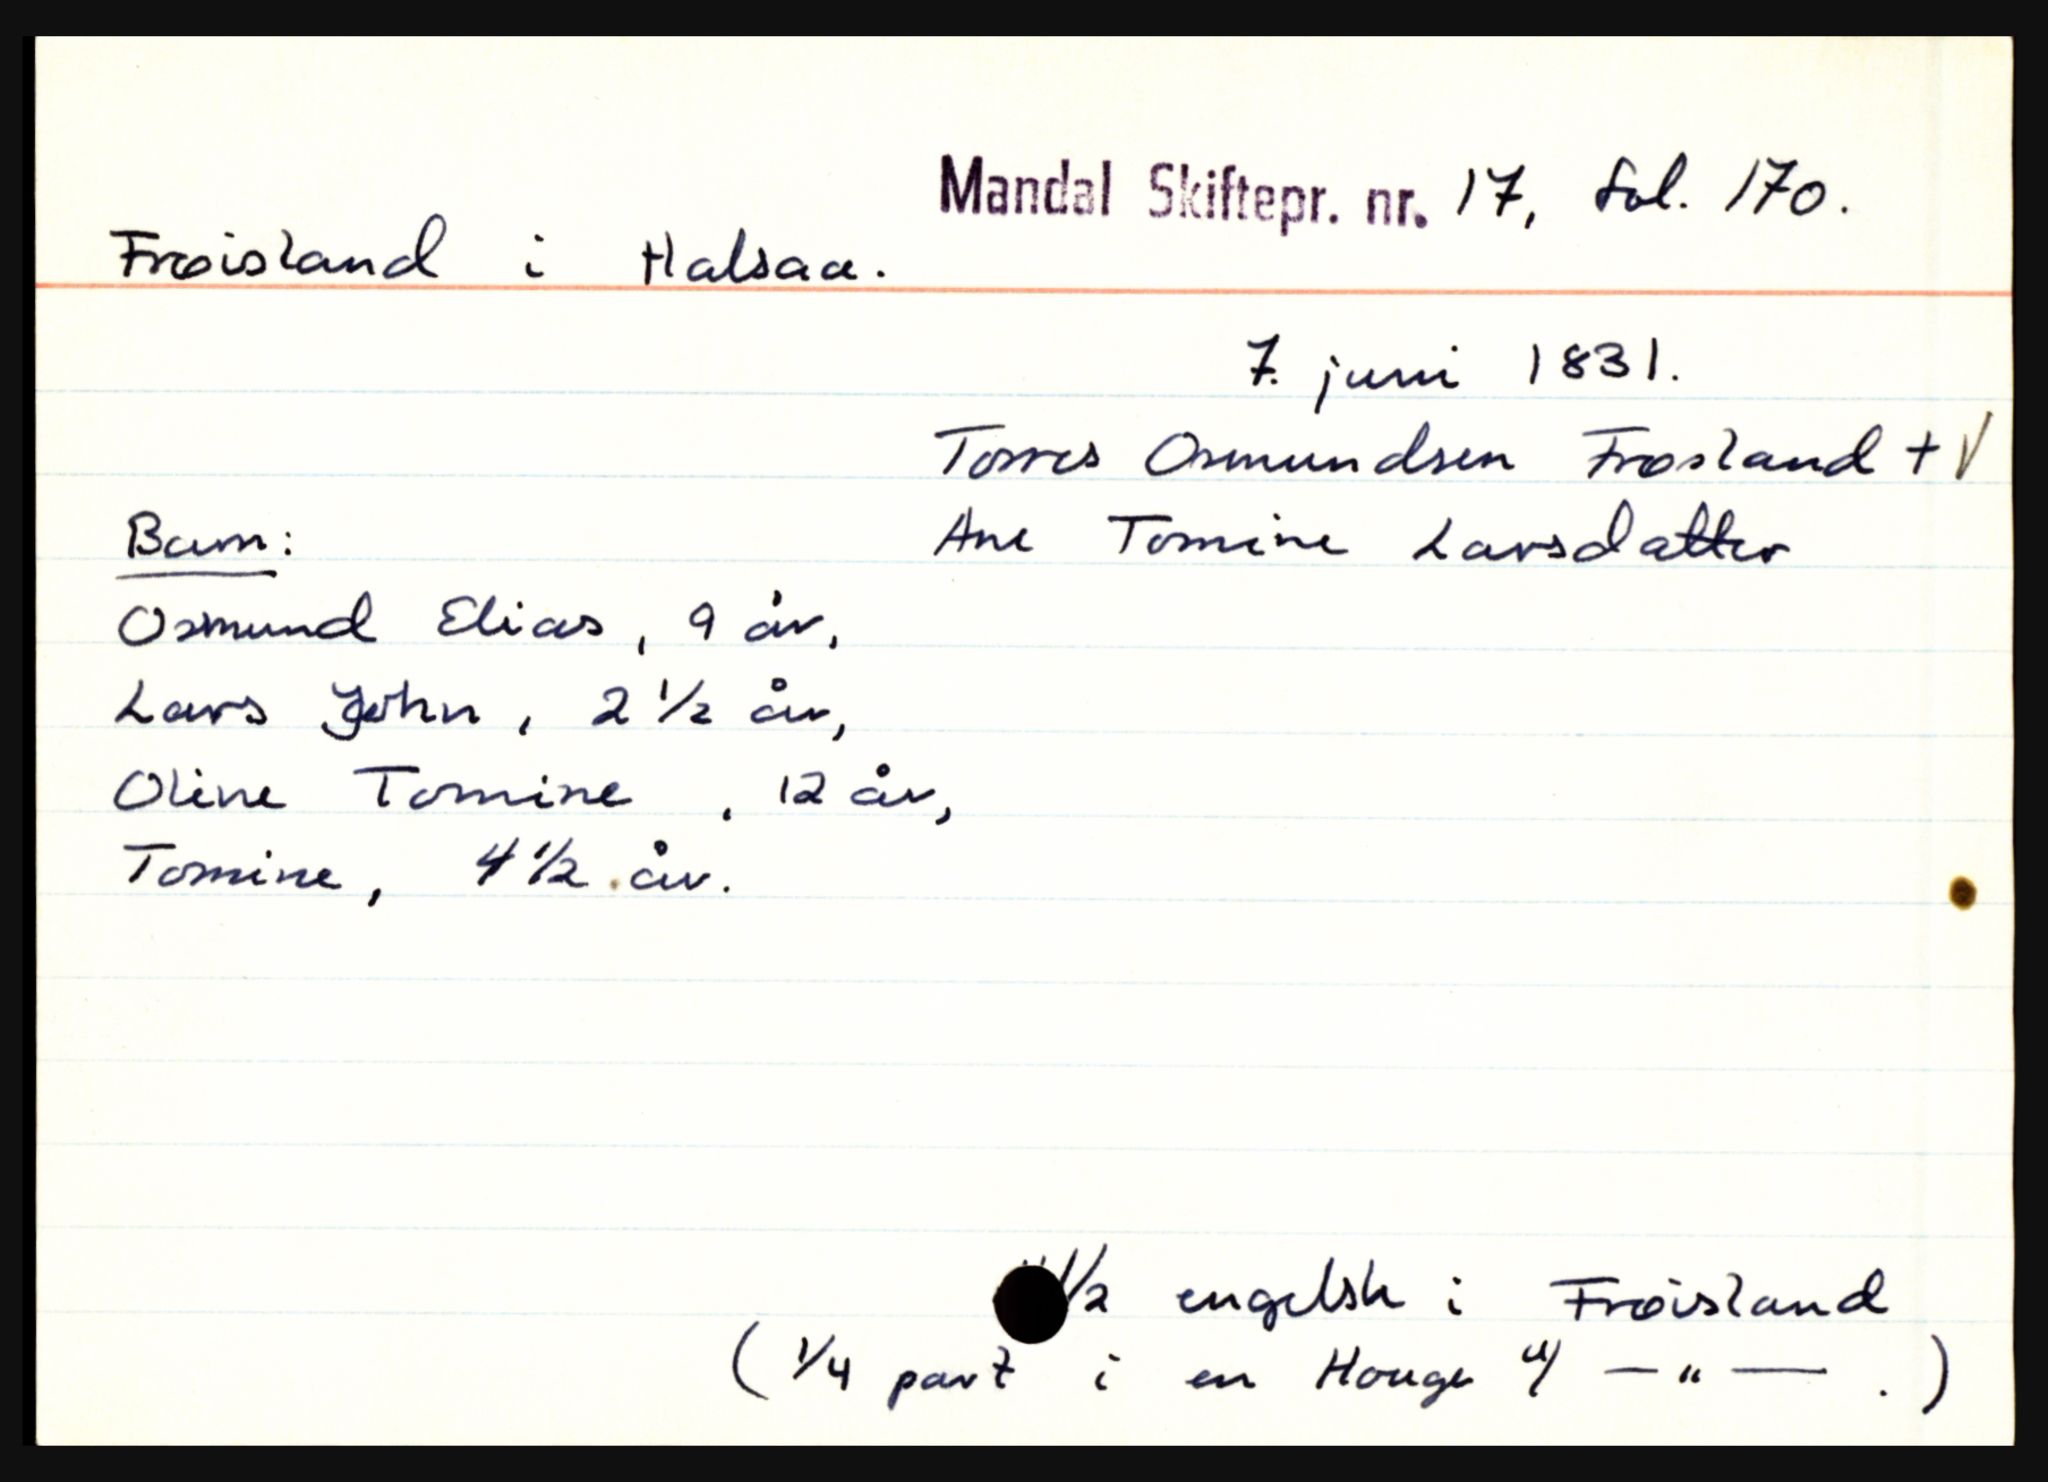 Mandal Skiftepr. nr. 17, fol. 170.
Frøisland i Halsaa.
7. juni 1831.
Torres Osmundsen Frøsland + V
Ane Tomine Larsdatter
Barn:
Osmund Elias, 9 år,
Lars John, 2 1/2 år,
Oline Tomine, 12 år,
Tomine, 4 1/2 år.
1/2 engelsk i Frøisland
(1/4 part i en Houge u/ — " — .)